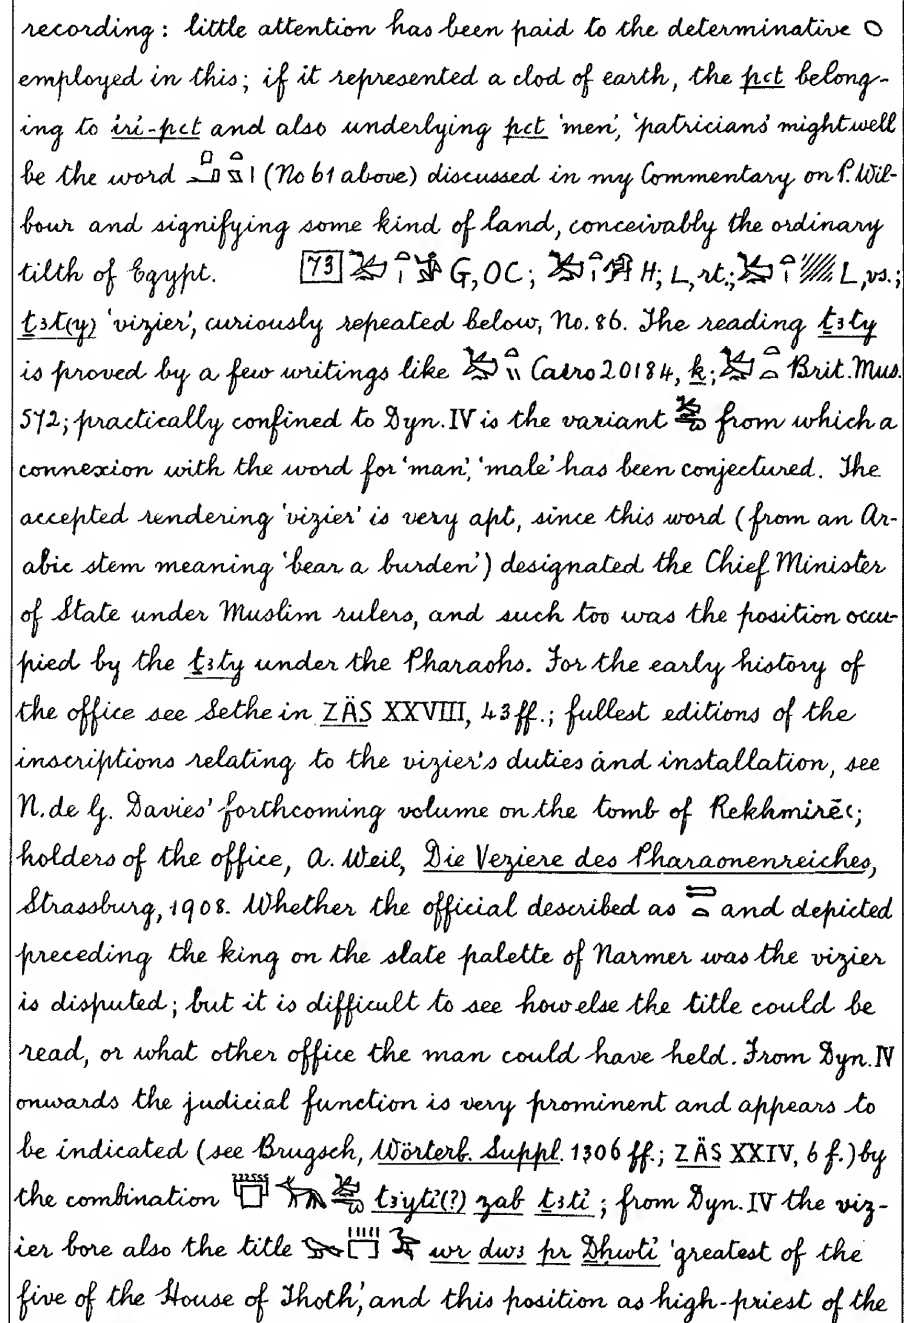 recording: little attention has been paid to the determinative
employed in this; if it represented a clod of earth, the pꜥt belong-
ing to iri-pꜥt and also underlying pꜥt 'men', 'patricians' might well
be the word (No 61 above) discussed in my Commentary on P. Wil-
bour and signifying some kind of land, conceivably the ordinary
tilth of Egypt. 73 G, OC; H; L, rt.; L, vs.;
ṯꜣt(y) 'vizier', curiously repeated below, No. 86. The reading ṯꜣty
is proved by a few writings like Cairo 20184, k; Brit. Mus.
572; practically confined to Dyn. IV is the variant from which a
connexion with the word for 'man', 'male' has been conjectured. The
accepted rendering 'vizier' is very apt, since this word (from an Ar-
abic stem meaning 'bear a burden') designated the Chief Minister
of State under Muslim rulers, and such too was the position occu-
pied by the ṯꜣty under the Pharaohs. For the early history of
the office see Sethe in ZÄS XXVIII, 43 ff.; fullest editions of the
inscriptions relating to the vizier's duties and installation, see
N. de G. Davies' forthcoming volume on the tomb of Rekhmirēꜥ;
holders of the office, A. Weil, Die Veziere des Pharaonenreiches,
Strassburg, 1908. Whether the official described as and depicted
preceding the king on the slate palette of Narmer was the vizier
is disputed; but it is difficult to see how else the title could be
read, or what other office the man could have held. From Dyn. IV
onwards the judicial function is very prominent and appears to
be indicated (see Brugsch, Wörterb. Suppl. 1306 ff.; ZÄS XXIV, 6 f.) by
the combination tꜣyti(?) zab ṯꜣti; from Dyn. IV the viz-
ier bore also the title wr dwꜣ pr Ḏḥwti 'greatest of the
five of the House of Thoth', and this position as high-priest of the